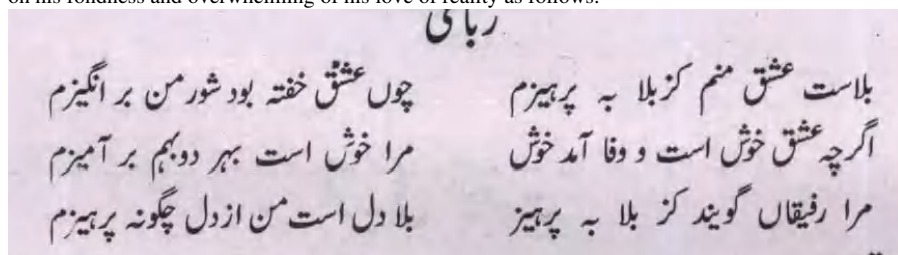 on his fondness and overwhelming of his love of reality as follows.
رباعی
بلاست عشق منم کز بلا به پرہیزم چوں عشق خفتہ بود شور من بر انگیزم
اگرچہ عشق خوش است و وفا آمد خوش مرا خوش است بہر دو بہم بر آمیزم
مرا رفیقاں گویند کز بلا بہ پرہیز بلا دل است من از دل چگونہ پرہیزم